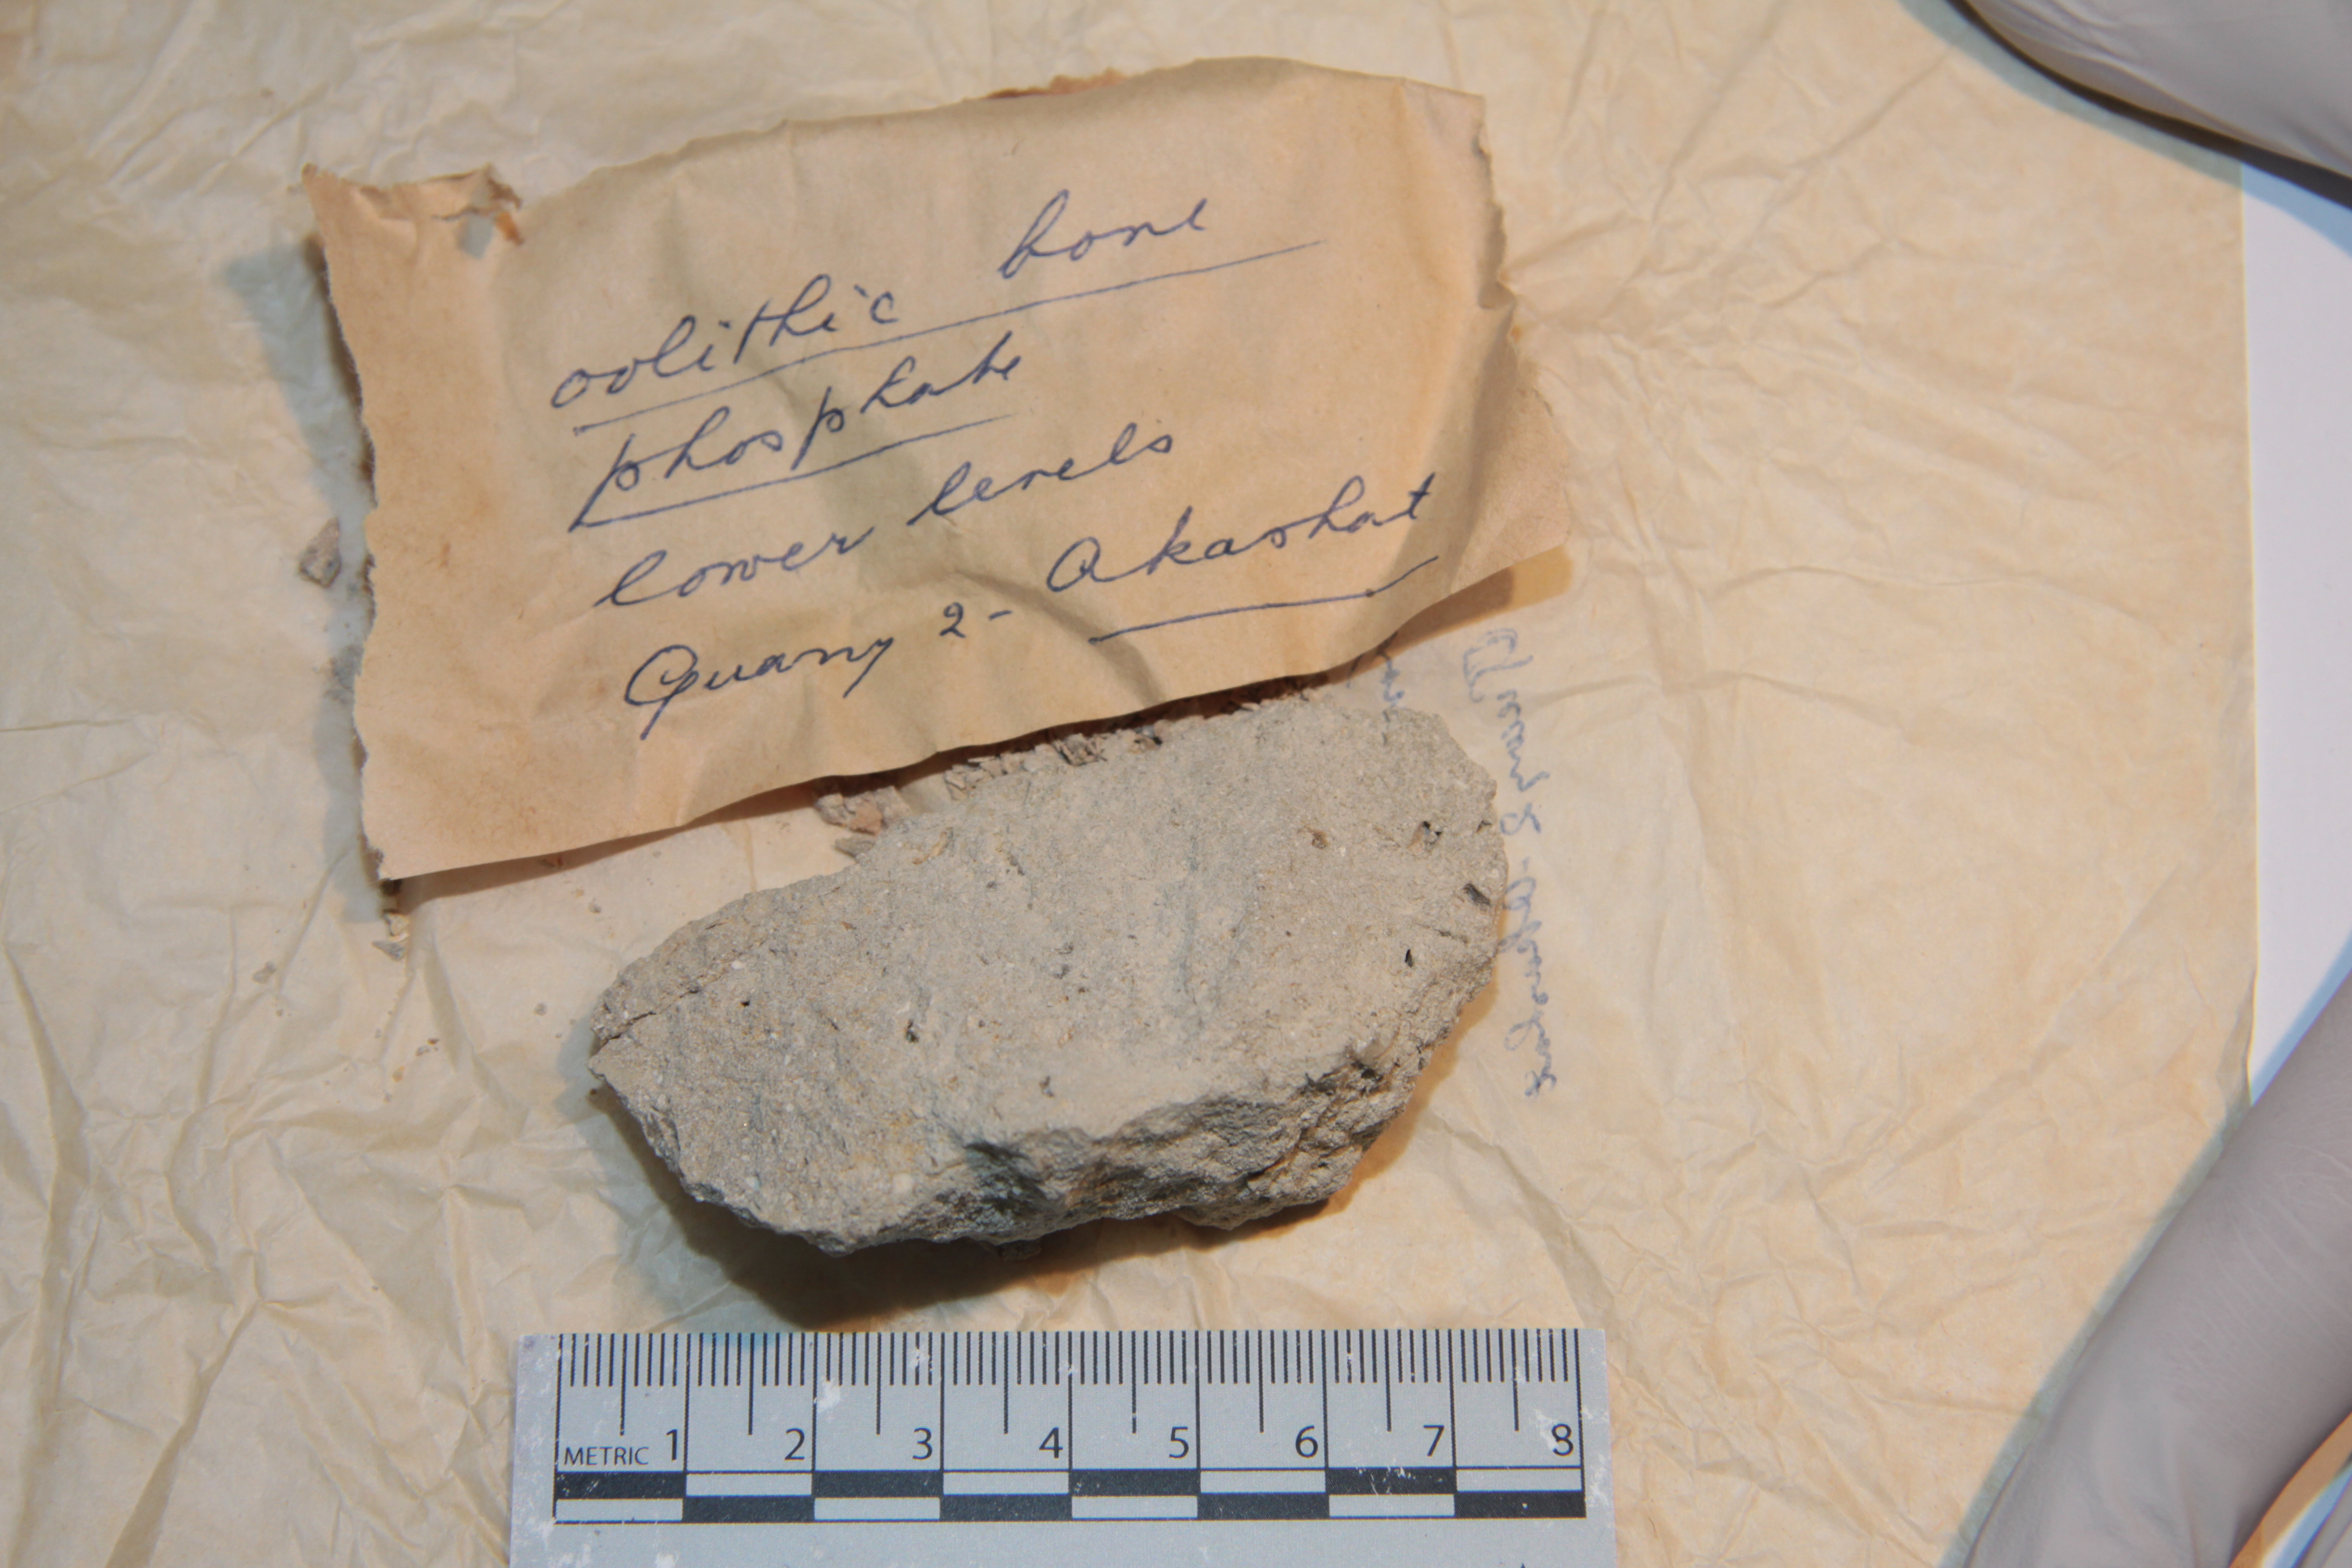 oolithic bone
phosphate
lower levels
Quarry 2- Akashat
METRIC 1 2 3 4 5 6 7 8